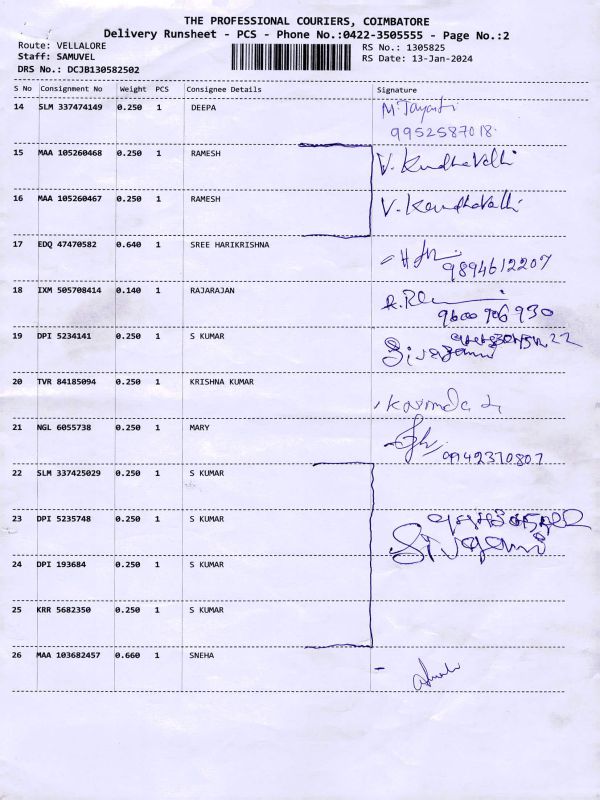 THE PROFESSIONAL COURIERS, COIMBATORE
Delivery Runsheet - PCS - Phone No.:0422-3505555 - Page No.:2
Route: VELLALORE
Staff: SAMUVEL
DRS No.: DCJB130582502
RS No.: 1305825
RS Date: 13-Jan-2024
S No Consignment No Weight PCS Consignee Details Signature
14 SLM 337474149 0.250 1 DEEPA M. Jayanti
9952587018
15 MAA 105260468 0.250 1 RAMESH V. Kandhavalli
16 MAA 105260467 0.250 1 RAMESH V. Kandhavalli
17 EDQ 47470582 0.640 1 SREE HARIKRISHNA
9894612207
18 IXM 505708414 0.140 1 RAJARAJAN
9600906930
19 DPI 5234141 0.250 1 S KUMAR
Sivagami
20 TVR 84185094 0.250 1 KRISHNA KUMAR
21 NGL 6055738 0.250 1 MARY
9942370807
22 SLM 337425029 0.250 1 S KUMAR
23 DPI 5235748 0.250 1 S KUMAR
Sivagami
24 DPI 193684 0.250 1 S KUMAR
25 KRR 5682350 0.250 1 S KUMAR
26 MAA 103682457 0.660 1 SNEHA